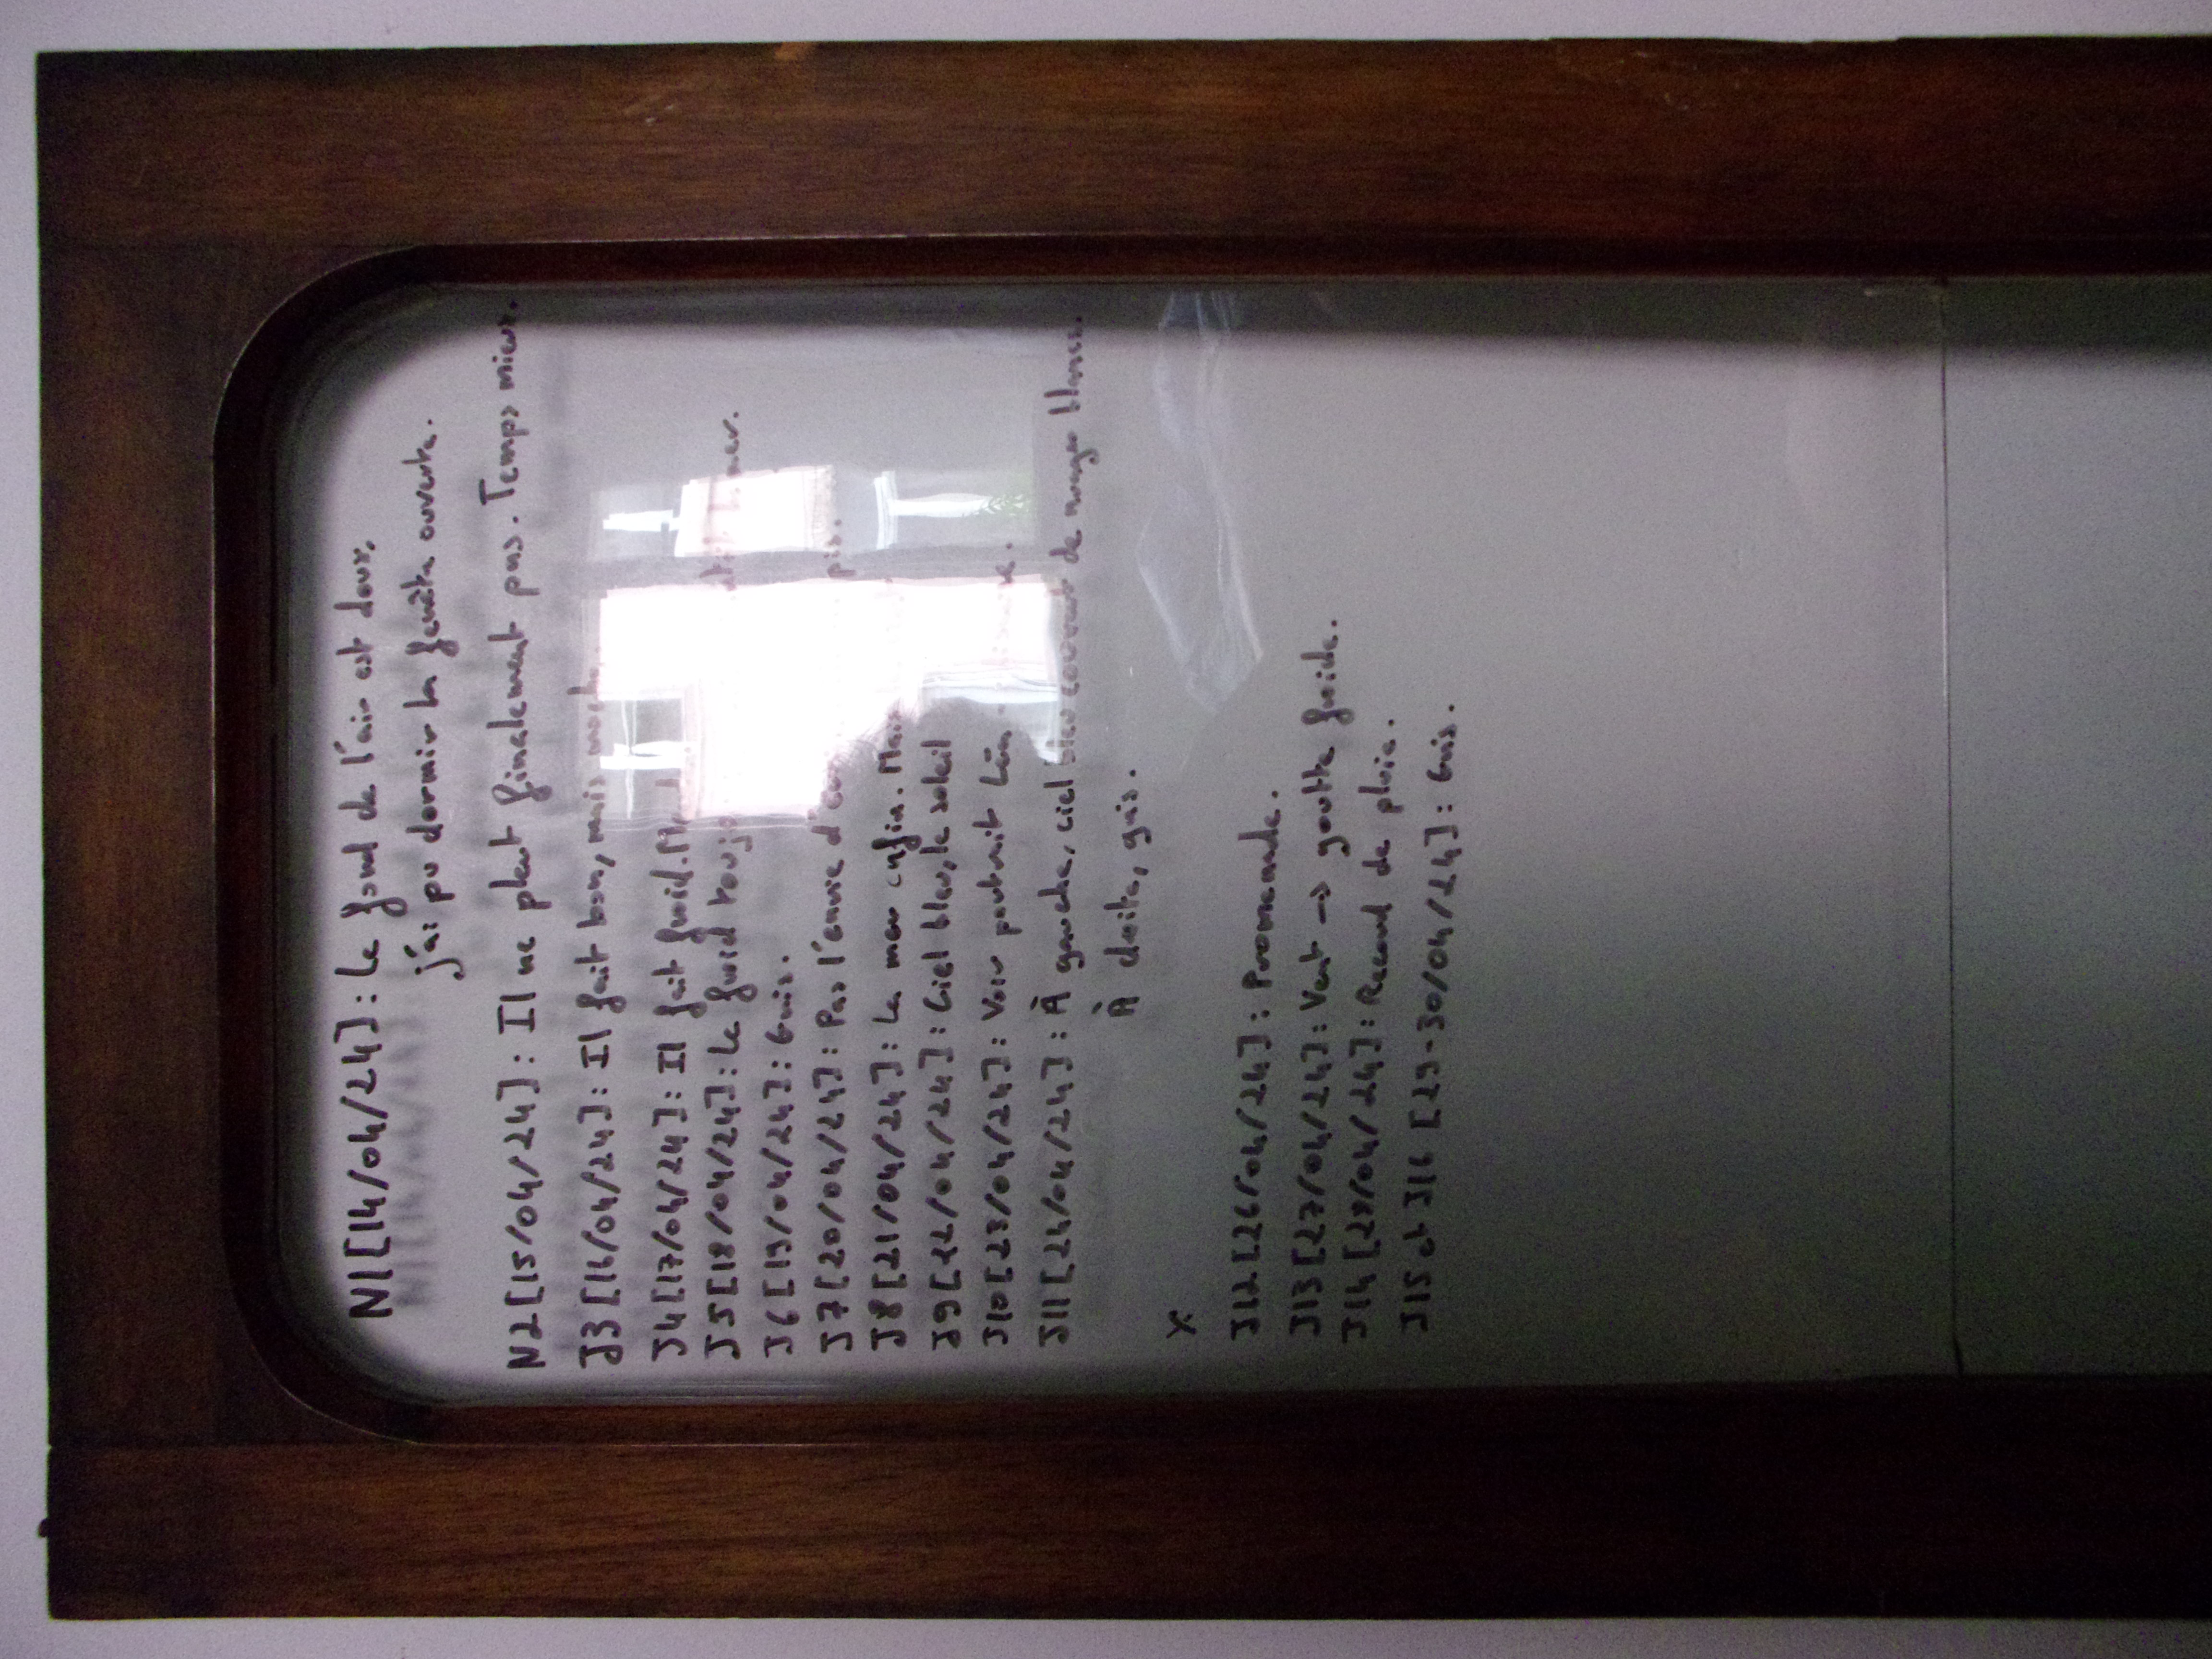 N1[14/04/24]: Le fond de l'air est doux,
j'ai pu dormir la fenêtre ouverte.
N2[15/04/24]: Il ne pleut finalement pas. Temps mieux.
J3[16/04/24]: Il fait bon, mais
J4[17/04/24]: Il fait froid.
J5[18/04/24]: Le froid
J6[19/04/24]: Gris.
J7[20/04/24]: Pas l'envie
J8[21/04/24]: La mer enfin.
J9[22/04/24]: Ciel bleu, le soleil
J10[23/04/24]: Voir portrait
J11[24/04/24]: À gauche, ciel bleu couvert de nuages blancs.
À droite, gris.
X
J12[26/04/24]: Promenade.
J13[27/04/24]: Vent → goutte froide.
J14[28/04/24]: Record de pluie.
J15 et J16 [29-30/04/24]: Gris.